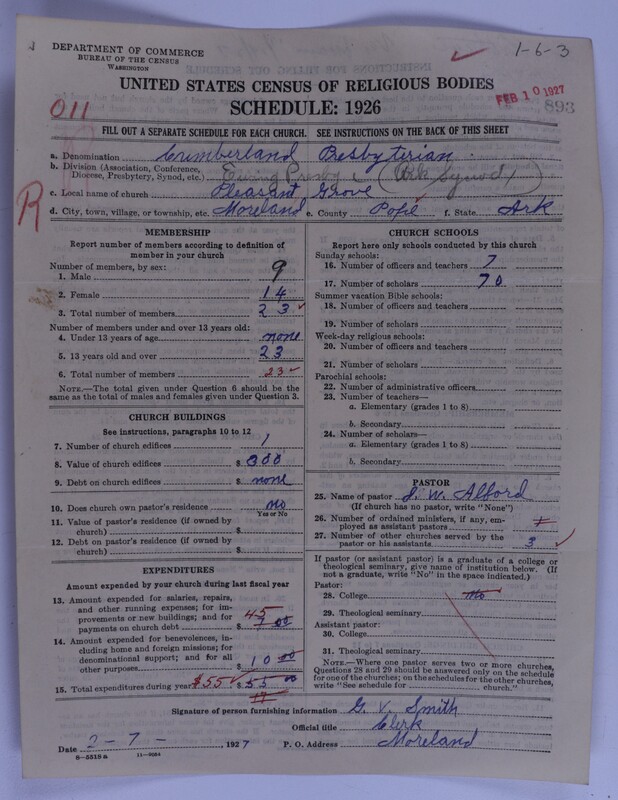 DEPARTMENT OF COMMERCE
BUREAU OF THE CENSUS
WASHINGTON
1-6-3
UNITED STATES CENSUS OF RELIGIOUS BODIES
SCHEDULE: 1926
011
FEB 10 1927
893
FILL OUT A SEPARATE SCHEDULE FOR EACH CHURCH. SEE INSTRUCTIONS ON THE BACK OF THIS SHEET
R
a. Denomination Cumberland Presbyterian
b. Division (Association, Conference, Diocese, Presbytery, Synod, etc.) Ewing Presby (Ark Synod)
c. Local name of church Pleasant Grove
d. City, town, village, or township, etc. Moreland e. County Pope f. State Ark
MEMBERSHIP
Report number of members according to definition of
member in your church
Number of members, by sex:
1. Male 9
2. Female 14
3. Total number of members 23
Number of members under and over 13 years old:
4. Under 13 years of age none
5. 13 years old and over 23
6. Total number of members 23
NOTE.—The total given under Question 6 should be
same as the total of males and females given under Question 3.
CHURCH BUILDINGS
See instructions, paragraphs 10 to 12
7. Number of church edifices 1
8. Value of church edifices $ 300
9. Debt on church edifices $ none
10. Does church own pastor's residence no
Yes or No
11. Value of pastor's residence (if owned by
church) $
12. Debt on pastor's residence (if owned by
church) $
EXPENDITURES
Amount expended by your church during last fiscal year
13. Amount expended for salaries, repairs,
and other running expenses; for im-
provements or new buildings; and for 45
payments on church debt $
14. Amount expended for benevolences, in-
cluding home and foreign missions; for
denominational support; and for all
other purposes 10 00
15. Total expenditures during year $55 $ 55 00
CHURCH SCHOOLS
Report here only schools conducted by this church
Sunday schools:
16. Number of officers and teachers 7
17. Number of scholars 70
Summer vacation Bible schools:
18. Number of officers and teachers
19. Number of scholars
Week-day religious schools:
20. Number of officers and teachers
21. Number of scholars
Parochial schools:
22. Number of administrative officers
23. Number of teachers—
a. Elementary (grades 1 to 8)
b. Secondary
24. Number of scholars—
a. Elementary (grades 1 to 8)
b. Secondary
PASTOR
25. Name of pastor J. W. Alford
(If church has no pastor, write "None")
26. Number of ordained ministers, if any, em-
ployed as assistant pastors
27. Number of other churches served by the
pastor or his assistants 3
If pastor (or assistant pastor) is a graduate of a college or
theological seminary, give name of institution below. (If
not a graduate, write "No" in the space indicated.)
Pastor:
28. College No
29. Theological seminary
Assistant pastor:
30. College
31. Theological seminary
NOTE.—Where one pastor serves two or more churches,
Questions 28 and 29 should be answered only on the schedule
for one of the churches; on the schedules for the other churches,
write "See schedule for church."
Signature of person furnishing information G. V. Smith
Official title Clerk
Date 2-7- 1927 P. O. Address Moreland
8-5518 a 11-8084